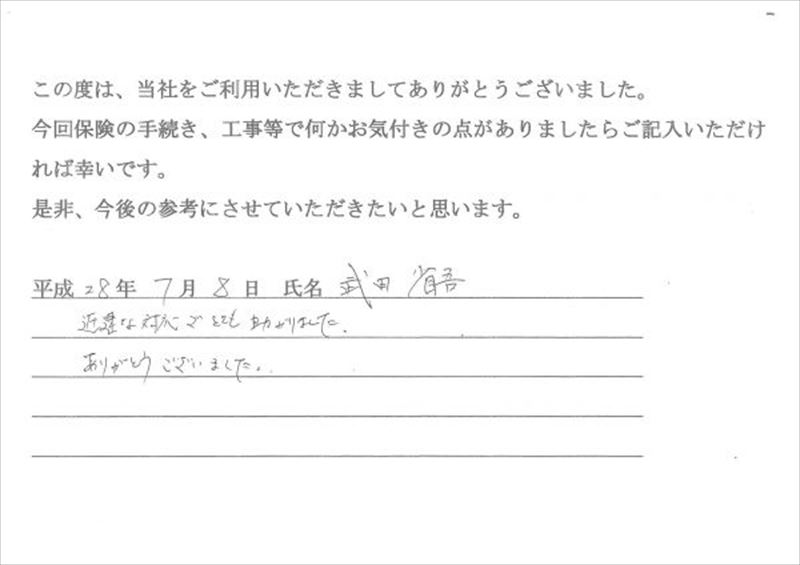 この度は、当社をご利用いただきましてありがとうございました。
今回保険の手続き、工事等で何かお気付きの点がありましたらご記入いただけ
れば幸いです。
是非、今後の参考にさせていただきたいと思います。
平成 28年 7月 8日 氏名 武田 省吾
迅速な対応でとても助かりました。
ありがとうございました。